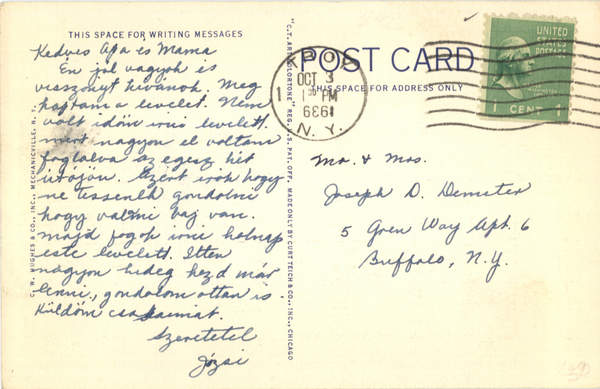 THIS SPACE FOR WRITING MESSAGES
Kedves Apa és Mama
Én jol vagyok is
viszonyt kivanok. Meg
kaptam a levelet. Nem
volt időm irni levelett.
mert nagyon el voltam
foglalva az egesz hét
utóján. Ezert irok hogy
ne tessenek gondolni
hogy valami baj van.
majd fogok irni holnap
este levelett. Itten
nagyon hideg kezd már
lenni, gondolom ottan is
Küldöm csokaimat.
Szeretetel
Józsi
C. W. HUGHES & CO., INC., MECHANICVILLE, N.
"C.T. ART-COLORTONE" REG. U.S. PAT. OFF. MADE ONLY BY CURT TEICH & CO., INC., CHICAGO
POST CARD
THIS SPACE FOR ADDRESS ONLY
OCT 3
1 PM
N. Y.
UNITED
STATES
POSTAGE
1 CENT 1
Mr. & Mrs.
Joseph D. Demeter
5 Gren Way Apt. 6
Buffalo, N.Y.